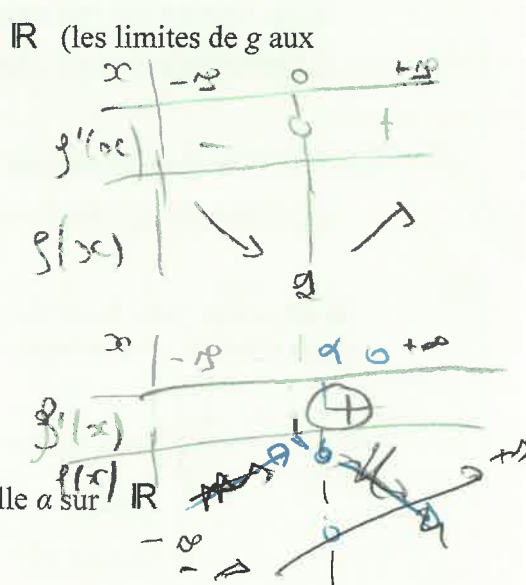 ℝ (les limites de g aux
x -∞ 0 +∞
g'(x) - 0 +
g(x)
2
x -∞ α 0 +∞
g'(x) +
f(x)
lle α sur ℝ
0 +∞
-∞